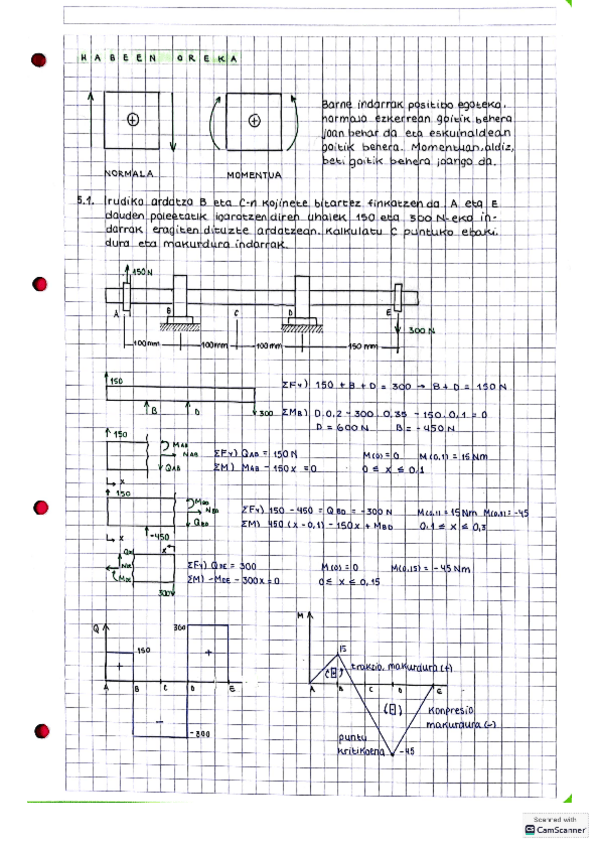 HABEEN OREKA
Barne indarrak positibo egoteko,
normala ezkerrean goitik behera
joan behar da eta eskuinaldean
goitik behera. Momentuan, aldiz,
beti goitik behera joango da.
NORMALA
MOMENTUA
5.1. Irudiko ardatza B eta C-n kojinete bitartez finkatzen da A eta E
dauden poleetatik igarotzen diren uhalek 150 eta 300 N-eko in-
darrak eragiten dituzte ardatzean. Kalkulatu C puntuko ebaki-
dura eta makurdura indarrak.
150 N
A B C D E
300 N
100 mm 100 mm 100 mm 150 mm
150
B D 300
ΣFy) 150 + B + D = 300 → B + D = 150 N
ΣMB) D·0,2 - 300·0,35 - 150·0,1 = 0
D = 600 N B = -450 N
150
MAB
NAB
QAB
x
ΣFy) QAB = 150 N M(0) = 0 M(0,1) = 15 Nm
ΣM) MAB - 150x = 0 0 ≤ x ≤ 0,1
150
MBD
NBD
QBD
x
-450
ΣFy) 150 - 450 = QBD = -300 N M(0,1) = 15 Nm M(0,3) = -45
ΣM) 450 (x - 0,1) - 150x + MBD 0,1 ≤ x ≤ 0,3
x
MDE
300
ΣFy) QDE = 300 M(0) = 0 M(0,15) = -45 Nm
ΣM) -MDE - 300x = 0 0 ≤ x ≤ 0,15
Q
300
150
+ +
A B C D E
-
-300
M
15
trakzio makurdura (+)
A B C D E
konpresio
makurdura (-)
puntu
kritikoena
-45
Scanned with
CamScanner